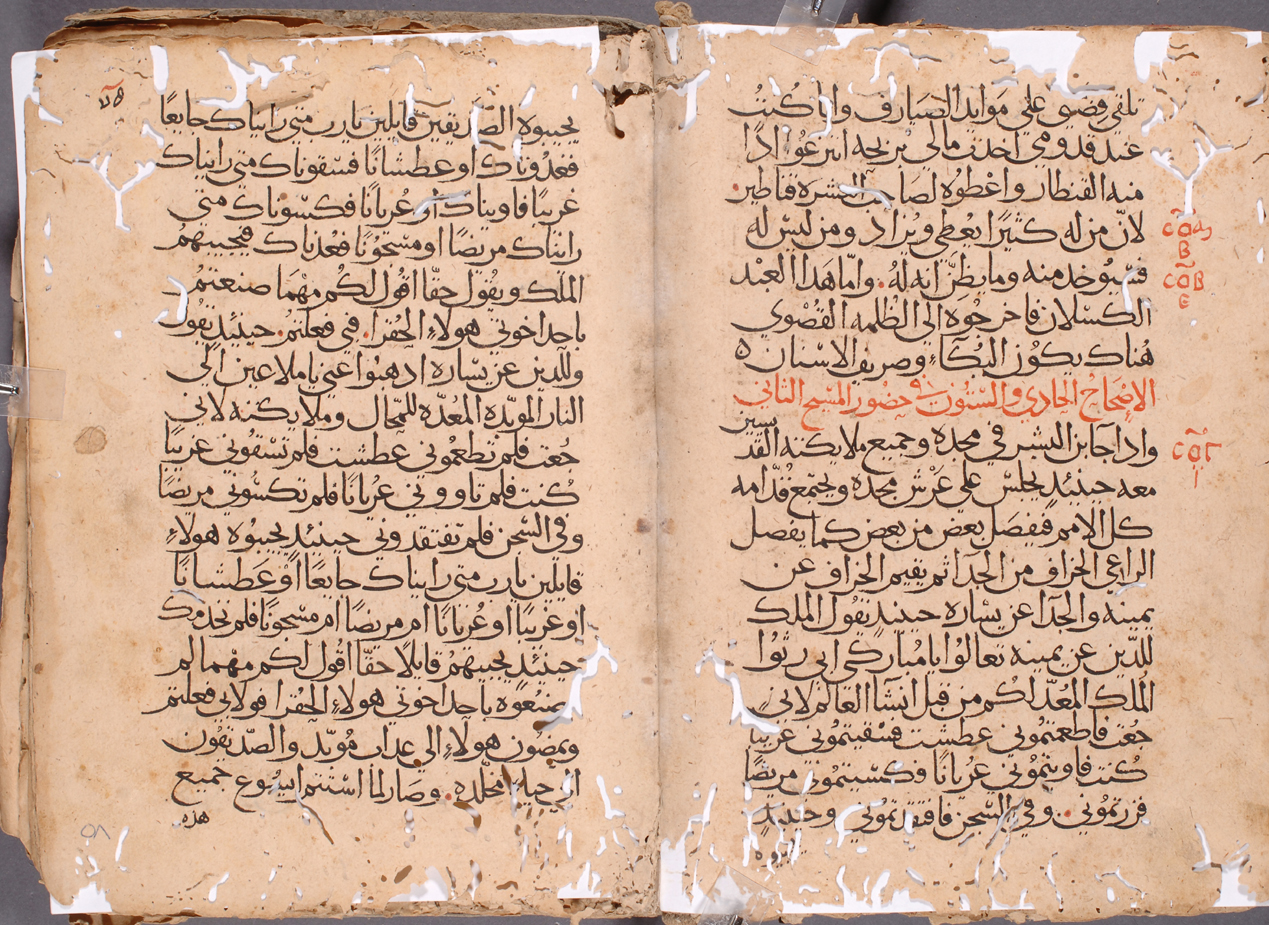 تلقي فضتي علي موايد الصيارف وانا كنت
عند قدومي اخدت مالي بربحه انتزعوا ادًا
منه القنطار واعْطوُه لصاحب العشرة قناطير
لانّ من له كثيرًا يُعطي ويُراد ومن ليسْ له
فسيوخد منه وما يظن انه لهُ. وامّا هدا العبْد
الكسلان فاخرجُوه الي الظُلمه القصْوي
هُناك يكوُن البُكآءِ وصريف الاسنان ه
الاِصْحَاحُ الحادي والستُون في حضُور المسيح الثاني
وادا جا ابن البشر في مجده وجميع ملايكته القديسين
معه حينئدٍ يجلسْ علي عَرْش مجدُه ويجتمع قُدّامه
كل الامم فيفصَل بعض من بعض كما يفصل
الراعي الخراف من الجدا ثم يقيم الخراف عن
يمينه والجدا عن يسَاره حينيدٍ يقُول الملك
للدّين عن يمينه تعالوُا يا مُباركي ابي رتُوا
المُلك المُعدّ لكُم من قبل انشا العالم لاني
جُعت فاطعمتمُوني عطشت فسْقيتمُوني غريبًا
كُنت فاويتمُوني عرُيانًا فكسْيتموُني مريضًا
فزرتمُوني. وفي السّجن فافتقدتموُني وحينيدٍ
ⲥⲟⲁ
ⲃ
ⲥⲟⲃ
ⲉ
ⲥⲟⲅ
ⲓ
يجيبوه الصّديقين قايلين يا رب متي رايناك جايعًا
فعدُوناك او عطشانًا فسْقوناك متي رايناك
غريبًا فاويناك او عُريانًا فكسْوناك متي
رايناك مريضًا او مسْجوُنًا فعُدناك فيجيبهمُ
الملك ويقُول حقّا اقُول لكُم مهْمَا صنعتمُ
باحد اخوتي هولاءِ الحُقرا. فبي فعلتمُ. حينئدٍ يقوُل
وللّدين عن يسْاره ادهبُوا عني يا ملاعين الي
النار المويّده المُعدّه للمّحال وملايكته لاني
جُعت فلم تطعمُوني عطشت فلم تسْقُوني غريبًا
كُنت فلم تاووني عرُيانًا فلم تكسْوني مريضًا
وفي السّجن فلم تفتقدوني حينئدٍ يجيبُوه هولاءِ
قايلين يا رب متي رايناك جايعًا اوْ عَطشانًا
او غريبًا او عُريانًا ام مريضًا ام مسْجونًا فلم نخدمك
حينئدٍ يجيبهمُ قايلا حقّا اقُول لكم مهْما لم
تصنعُوه باحد اخوتي هولاءِ الحُقرا فولابي فعلتم
ويمضُون هولاءِ الي عداب مُويّد والصّديقُون
الي حياه مخلّده. وصَار لما اسْتتم ايسُوع جميع
هده